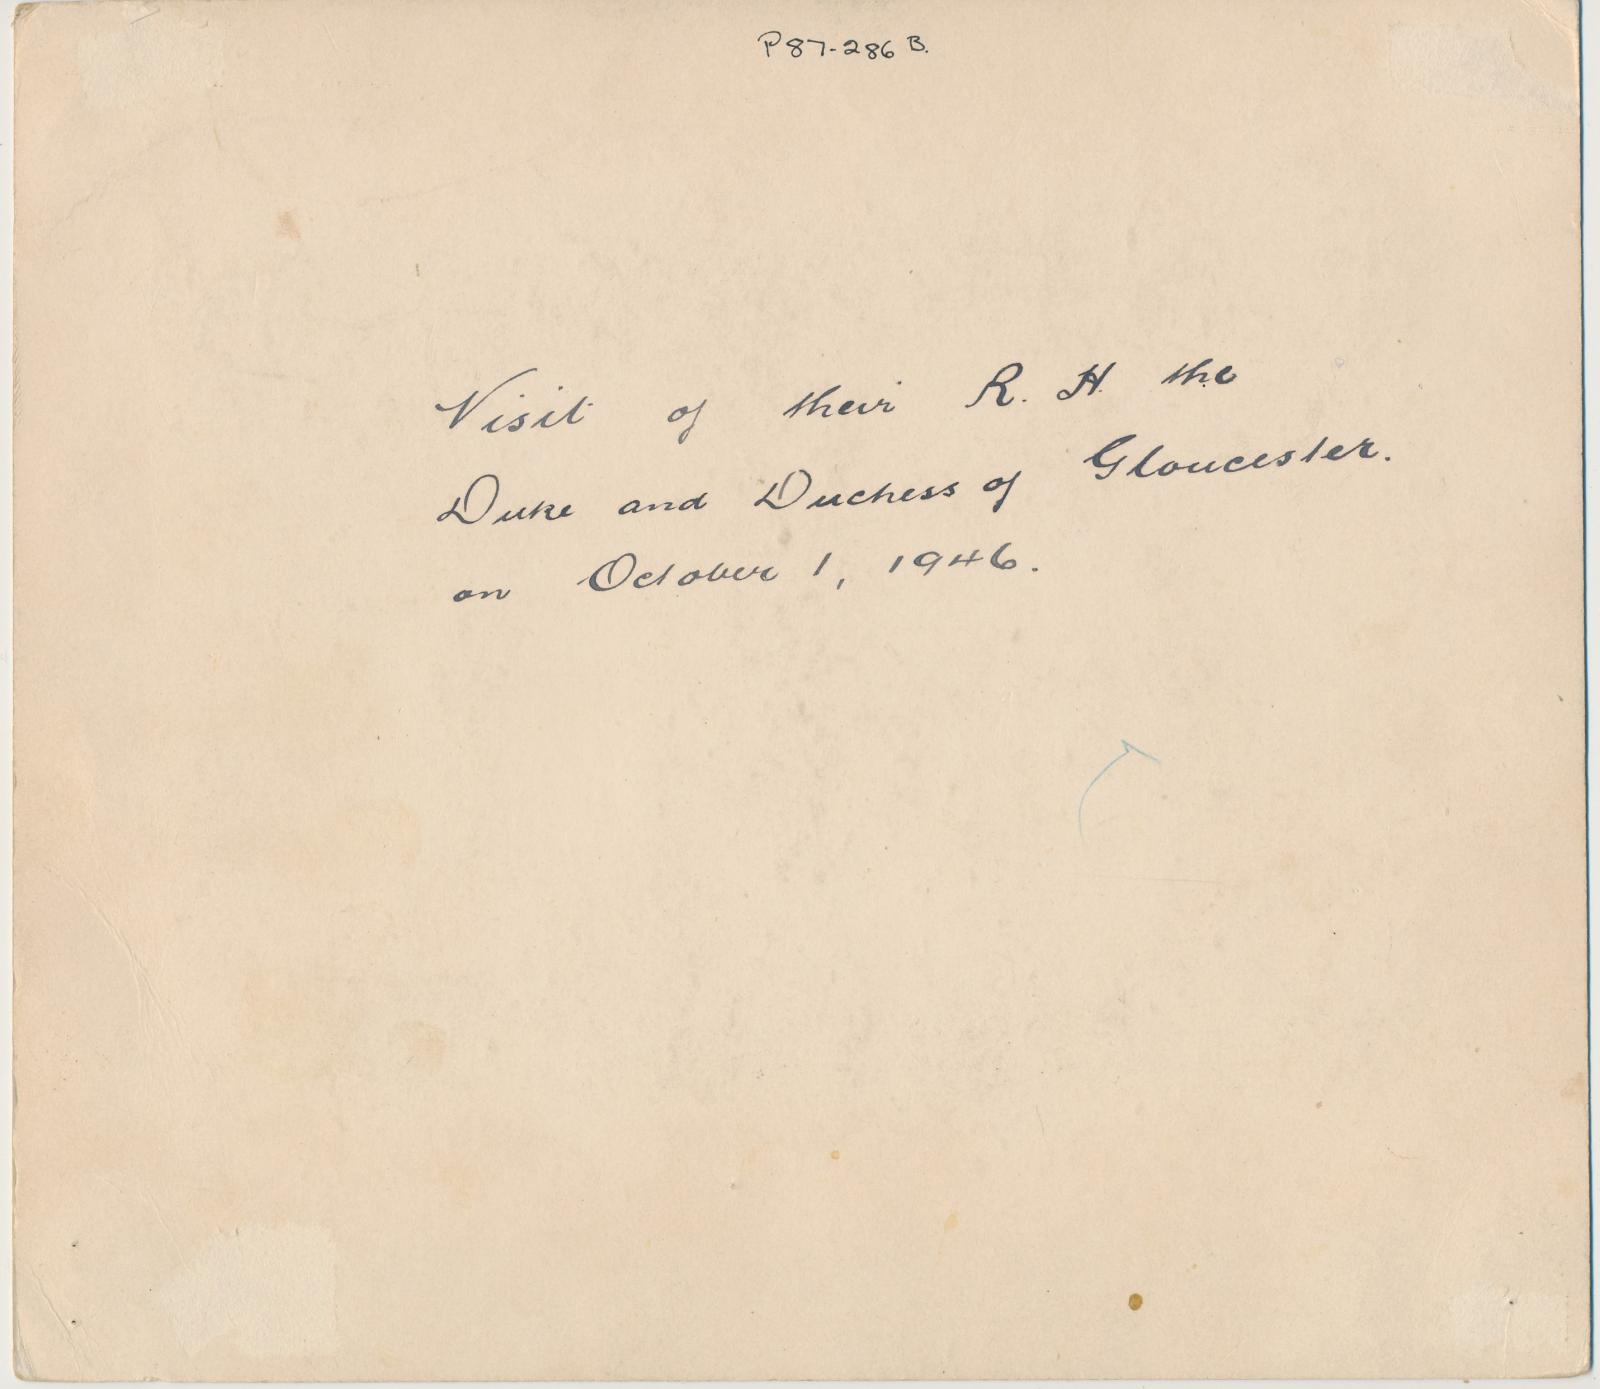 P87-286 B.
Visit of their R. H. the
Duke and Duchess of Gloucester.
on October 1, 1946.